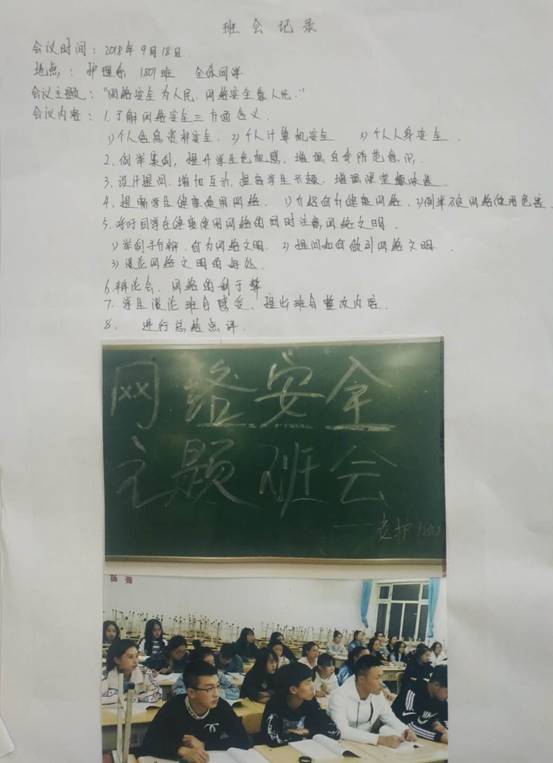 班会记录
会议时间：2018年9月18日
地点：护理系 1801班 全体同学
会议主题："网络安全为人民，网络安全靠人民."
会议内容：1.了解网络安全三方面含义.
1)个人信息资料安全. 2)个人计算机安全 3)个人人身安全.
2.例举案例，提升学生危机感，增强自我防范意识.
3.设计提问，增加互动，提高学生兴趣，增强课堂趣味性
4.提高学生健康使用网络. 1)介绍何为健康网络. 2)例举不健康网络使用危害
5.各行同学在健康使用网络的同时注意网络文明.
1)举例子分析，何为网络文明. 2)提问如何做到网络文明.
3)谈论网络文明的好处.
6.辩论会，网络的利于弊
7.学生谈论班会感受，提出班会整改内容.
8.进行总结点评.
网络安全
主题班会
——护180